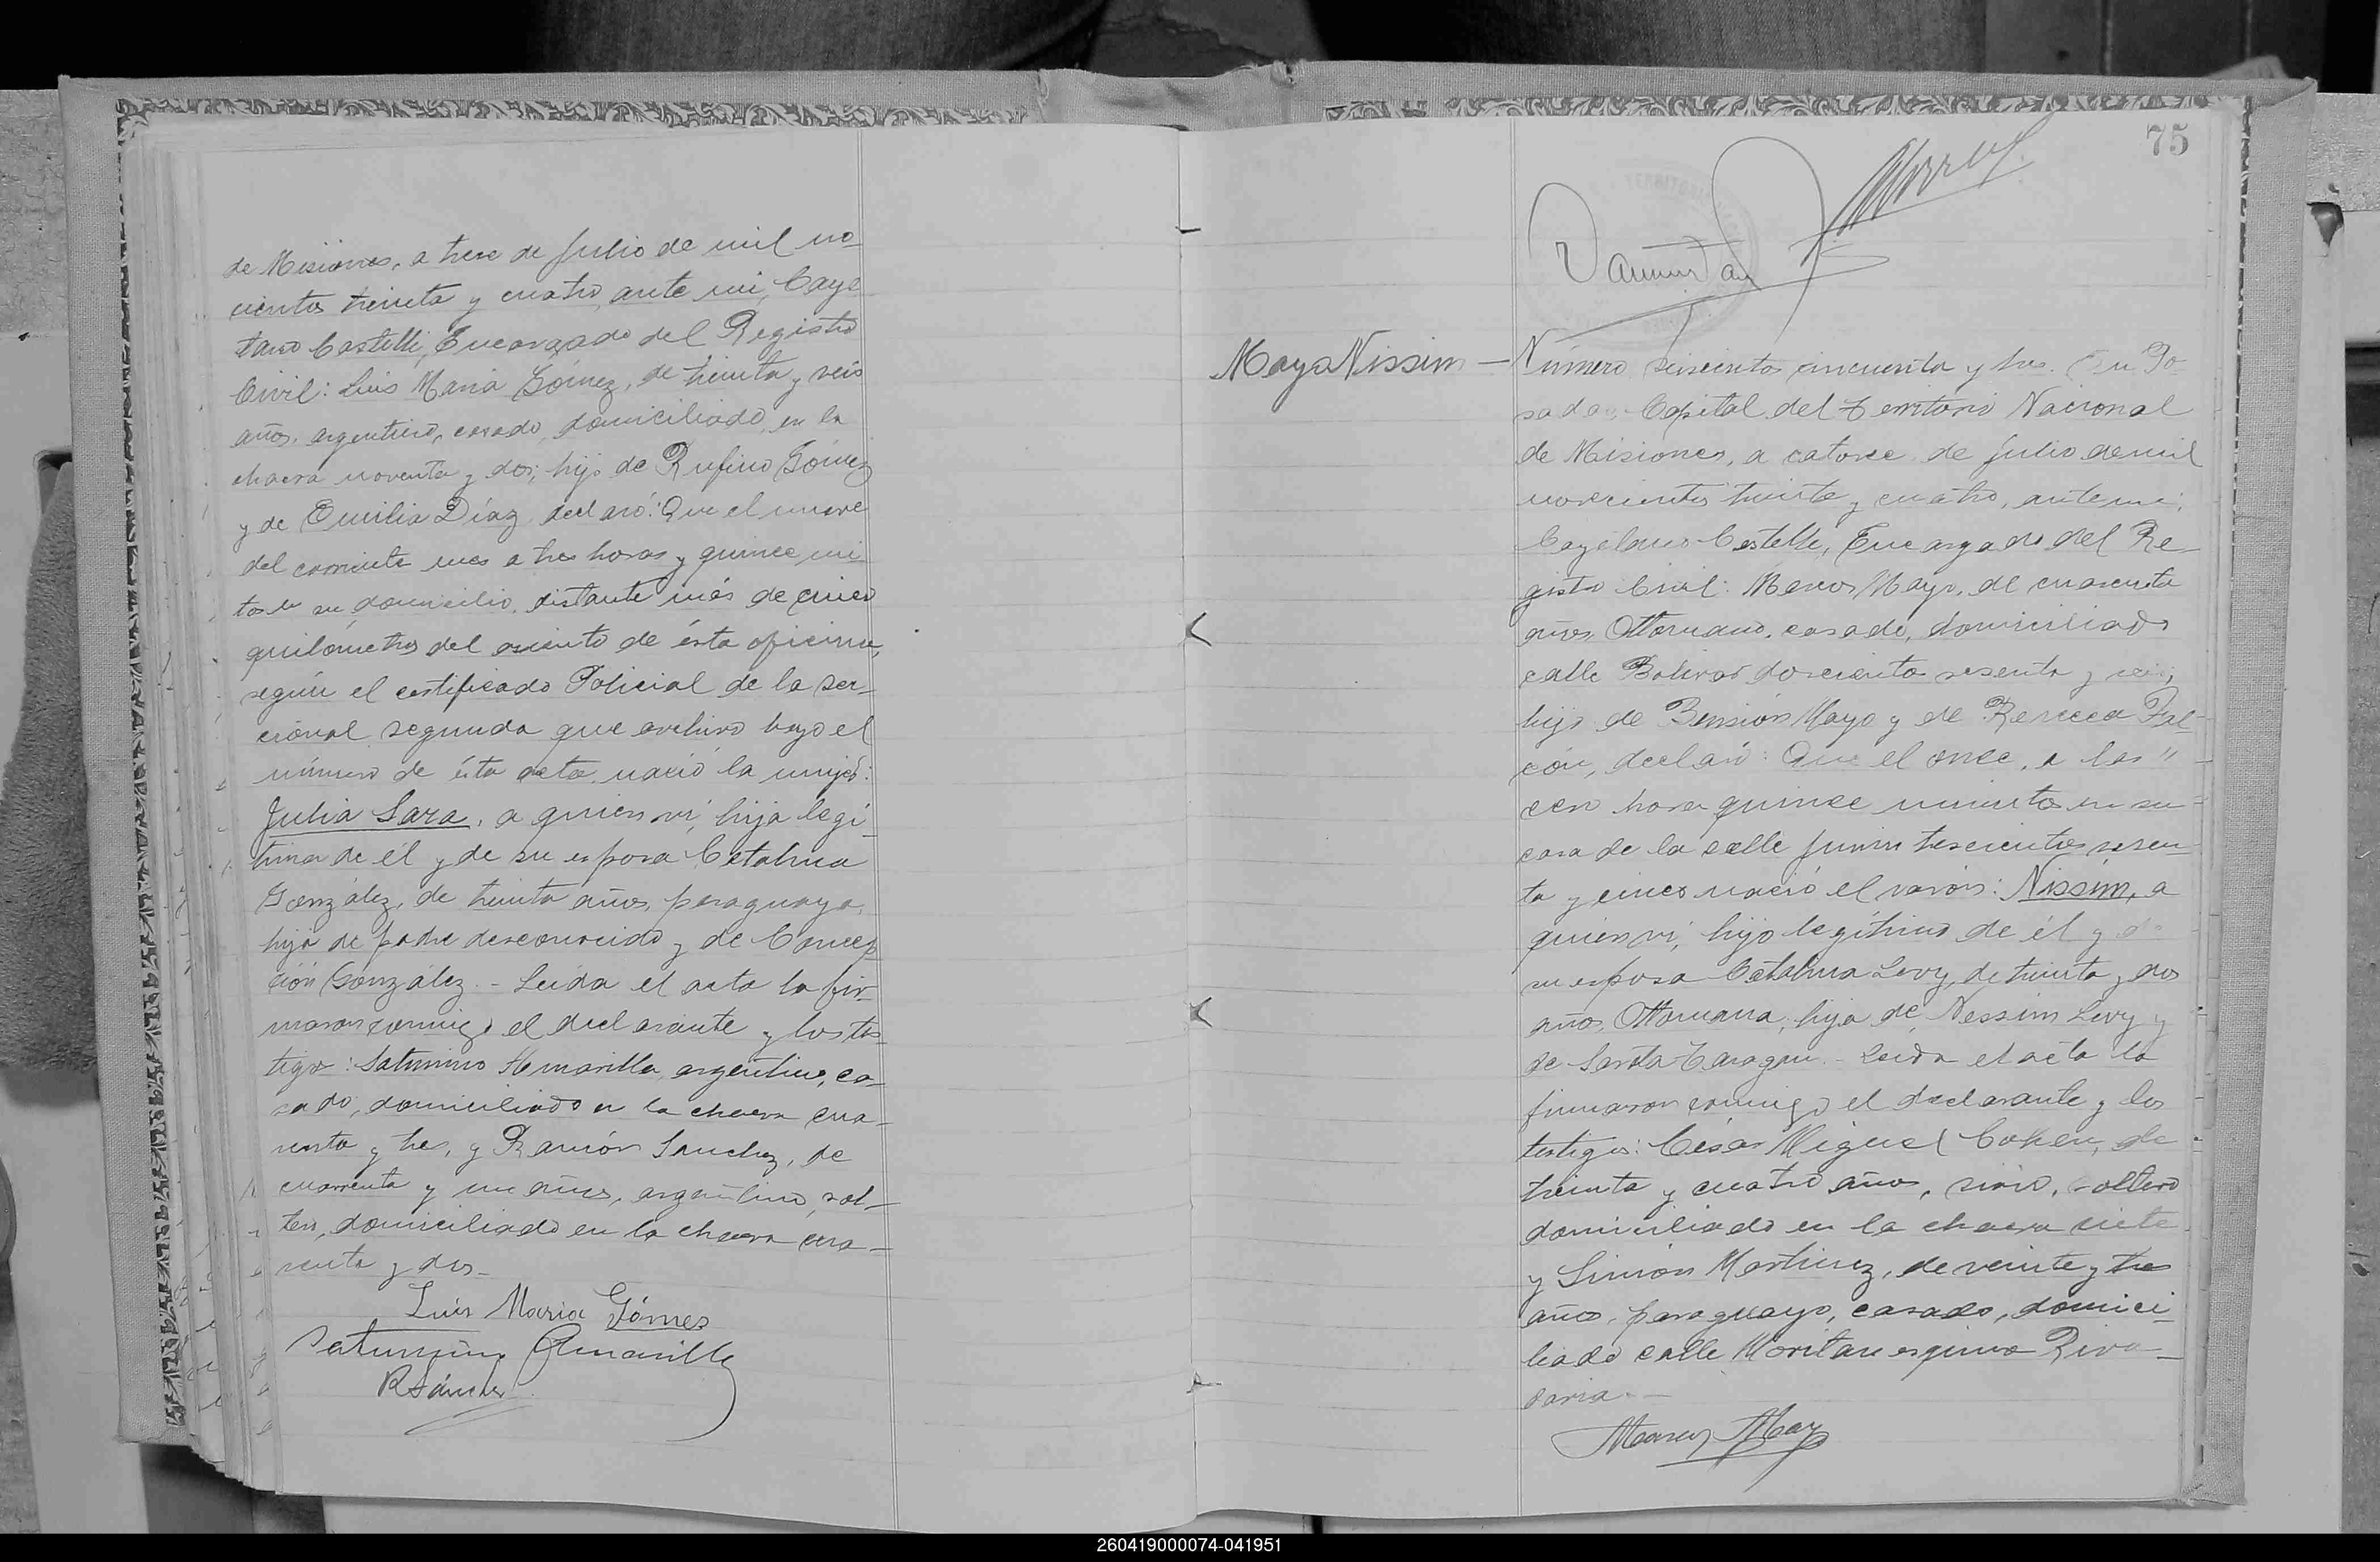 de Misiones, a trece de Julio de mil no-
cientos treinta y cuatro, ante mi, Caye
tano Castelli, Encargado del Registro
Civil: Luis Maria Gómez, de treinta y seis
años, argentino, casado, domiciliado en la
chacra noventa y dos; hijo de Rufino Gómez
y de Emilia Díaz, declaró: Que el nueve
del corriente mes a tres horas y quince mi
tos en su domicilio, distante más de cinco
quilómetros del asiento de ésta oficina,
según el certificado Policial de la Sec-
cional segunda que archivo bajo el
número de ésta acta, nació la mujer:
Julia Sara, a quien vi, hija legi-
tima de él y de su esposa Catalina
González, de treinta años, paraguaya,
hija de padre desconocido y de Concep
ción González. - Leida el acta la fir-
maron conmigo el declarante y los tes-
tigos: Saturnino Amarilla, argentino, ca-
sado, domiciliado en la chacra cua-
renta y tres, y Ramón Sanchez, de
cuarenta y un años, argentino, sol-
tero, domiciliado en la chacra cua-
renta y dos.-
Luis Maria Gómez
Saturnino Amarilla
R Sánchez
75
Mayo Nissim -
Número seiscientos cincuenta y tres. En Po-
sadas, Capital del Territorio Nacional
de Misiones, a catorce de Julio de mil
novecientos treinta y cuatro, ante mi,
Cayetano Castelli, Encargado del Re-
gistro Civil: Marcos Mayo, de cuarenta
años, Otomano, casado, domiciliado
calle Bolivar doscientos sesenta y seis,
hijo de Bensión Mayo y de Rebecca Fal-
cón, declaró: Que el once, a las "
cero horas quince minutos en su
casa de la calle Junin trescientos sesen-
ta y cinco nació el varón: Nissim, a
quien vi, hijo legítimo de él y de
su esposa Catalina Levy, de treinta y dos
años, Otomana, hija de Nessim Levy y
de Sarota Taragan. - Leida el acta la
firmaron conmigo el declarante y los
testigos: César Miguel Cohen, de
treinta y cuatro años, sirio, soltero
domiciliado en la chacra siete
y Simón Martinez, de veinte y tres
años, paraguayo, casado, domici-
liado calle Moritan esquina Riva-
davia. -
Marcos Mayo
260419000074-041951